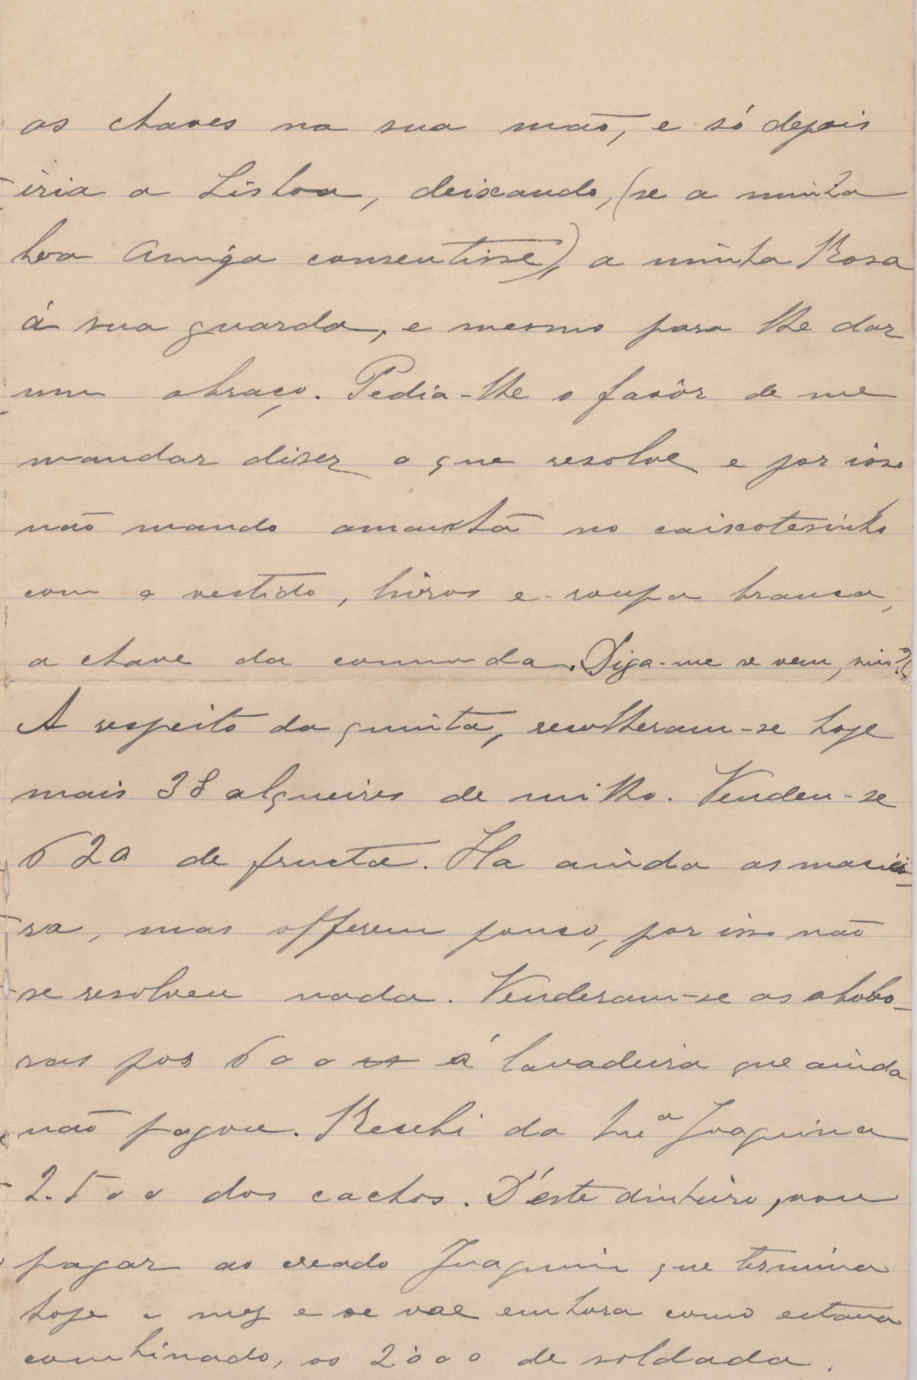 as chaves na sua mão, e só depois
iria a Lisboa, deixando, (se a minha
boa Amiga consentisse), a minha Rosa
á sua guarda, e mesmo para lhe dar
um abraço. Pedia-lhe o favôr de me
mandar diser o que resolve e por isso
não mando amanhã no caixotesinho
com o vestido, livros e roupa branca,
a chave da commoda. Diga-me se vem, sim?
A respeito da quinta, recolheram-se hoje
mais 38 alqueires de milho. Vendeu-se
620 de fructa. Ha ainda as maciei-
ra, mas offerem pouco, por isso não
se resolveu nada. Venderam-se as abobo-
ras por 600 rs á lavadeira que ainda
não pagou. Recebi da Joaquina
2.500 dos cachos. D'éste dinheiro, vou
pagar ao creado Joaquim que termina
hoje o mez e se vae embora como estava
combinado, os 2000 de soldada.